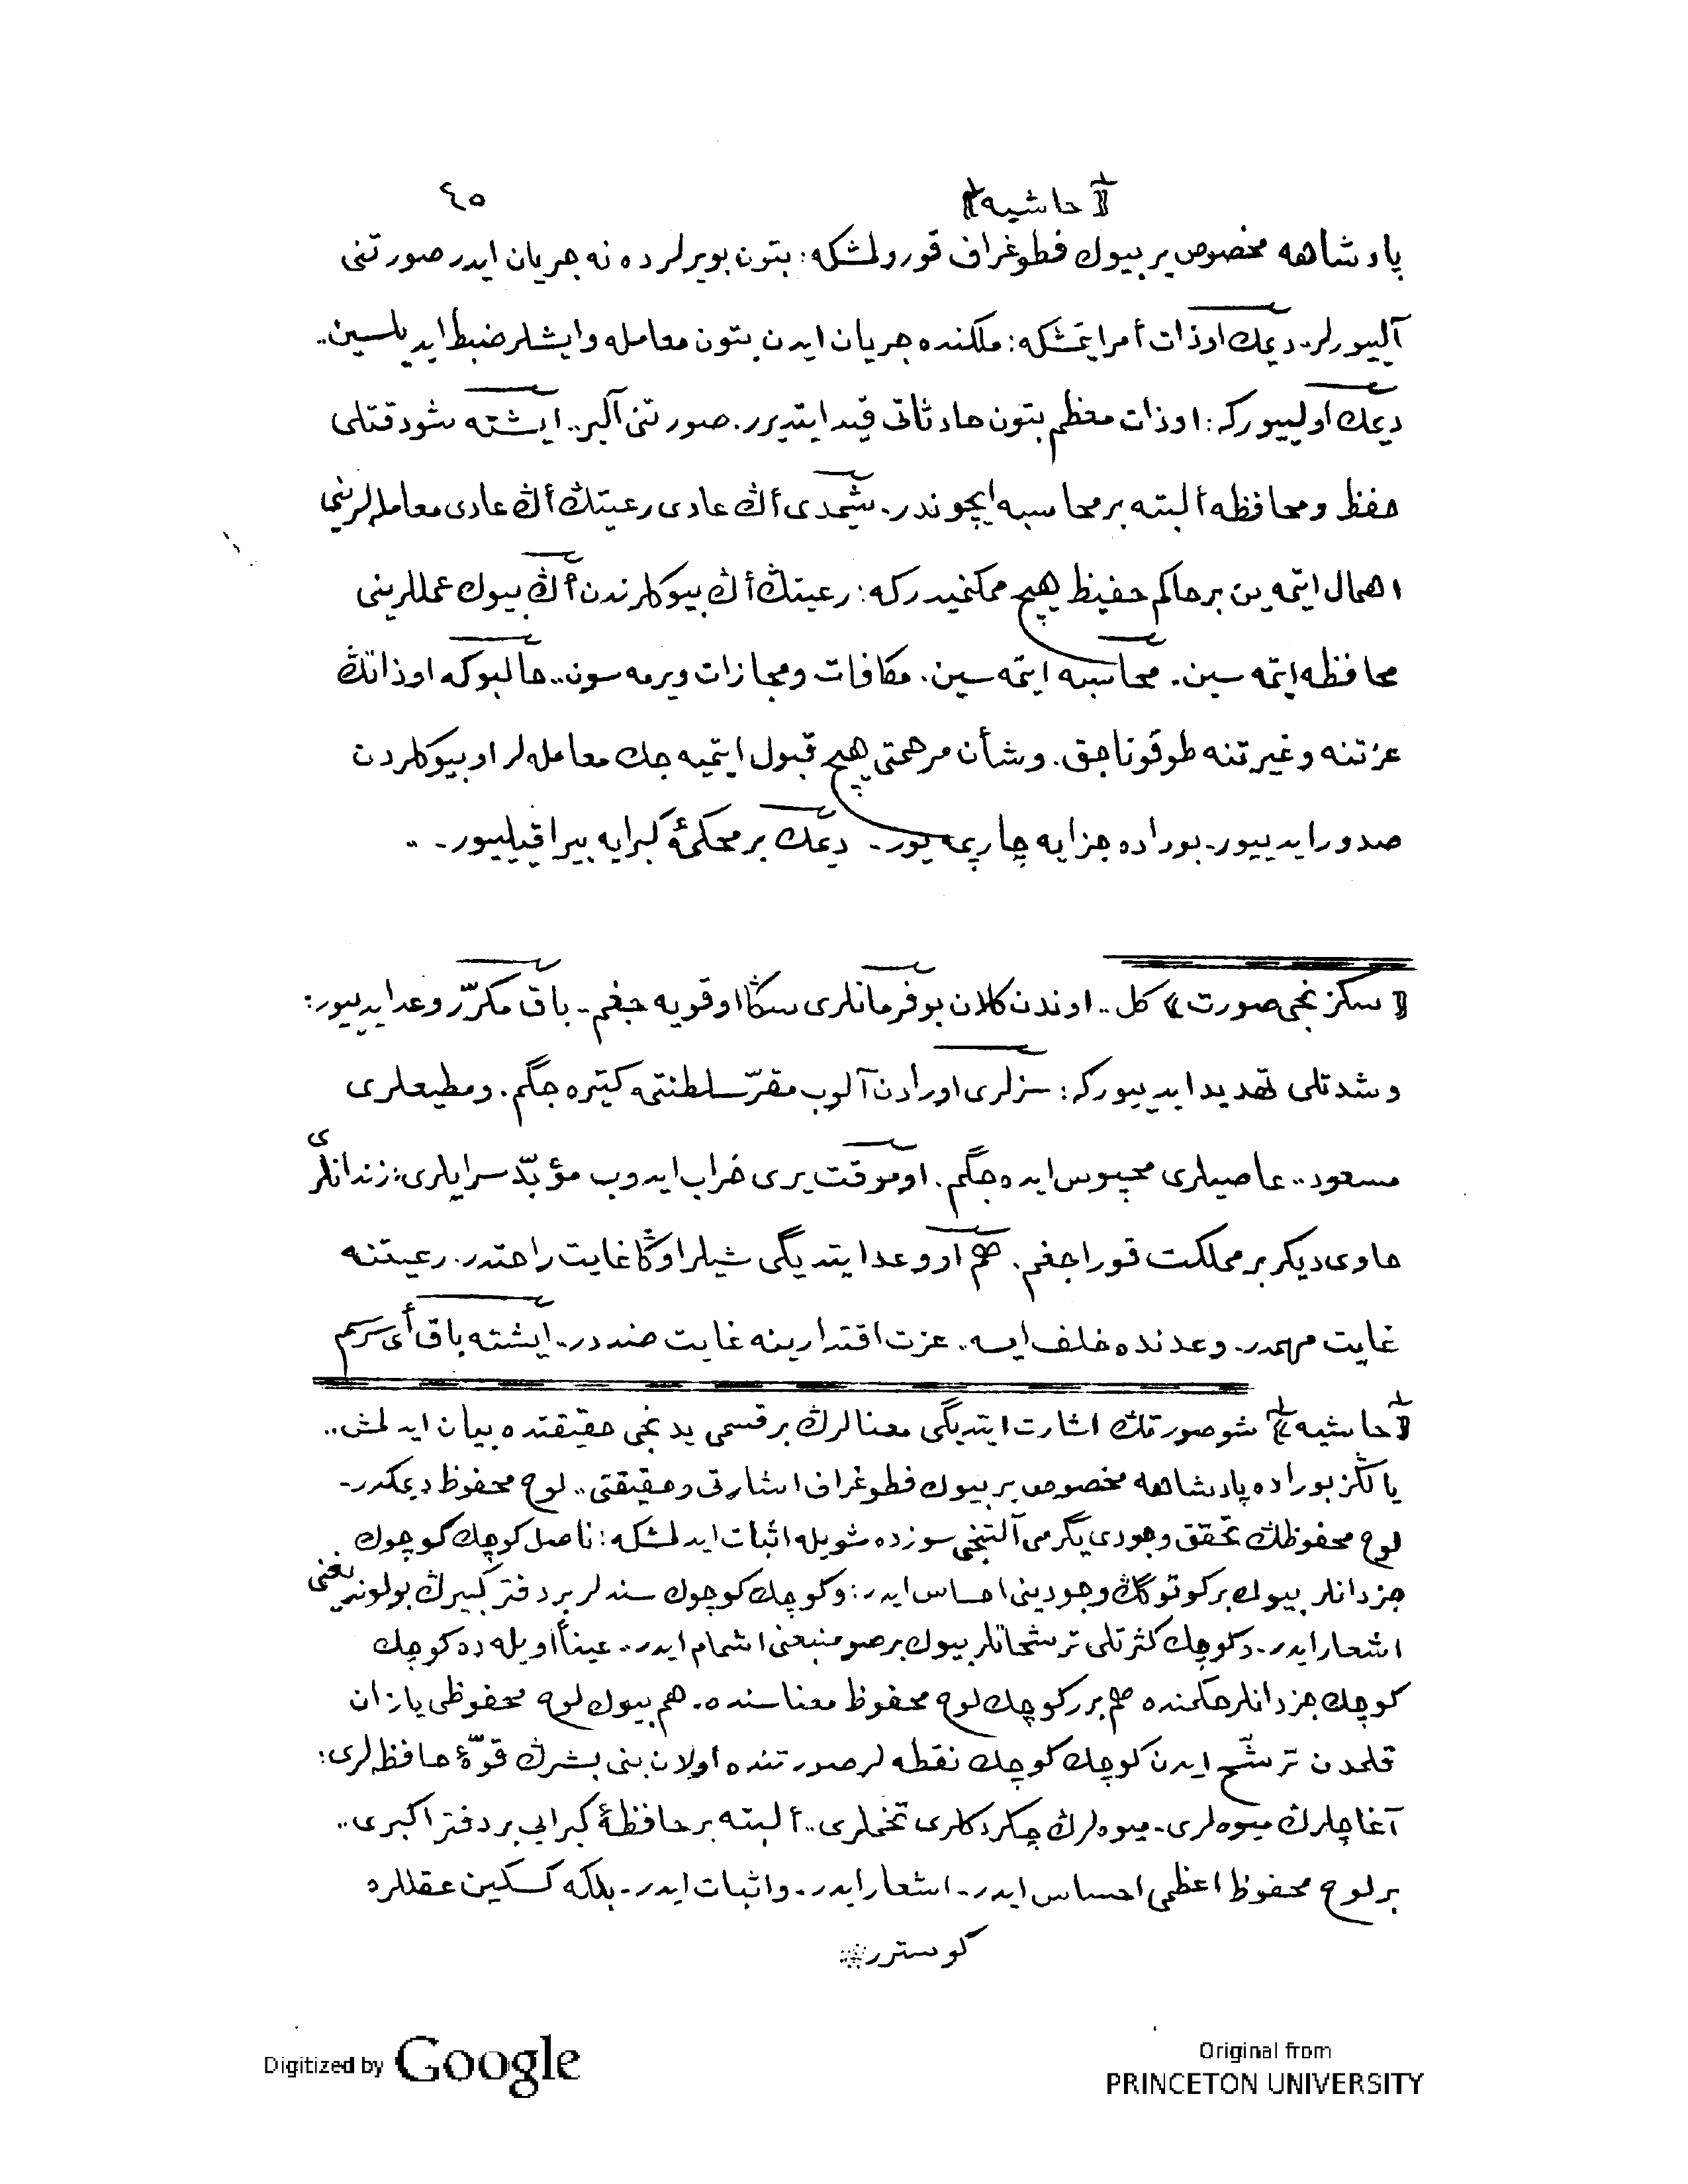 ٤٥
﴿حاشیه﴾
پادشاهه مخصوص بر بیوك فطوغراف قورولمشكه: بتون بویرلرده نه جریان ایدر صورتنی
آلییورلر.. دیمك اوذات أمر ایتمشكه: ملكنده جریان ایدن بتون معامله وایشلر ضبط ایدیلسین..
دیمك اولییوركه: اوذات معظم بتون حادثاتی قید ایتدیرر. صورتنی آلیر.. ایشته شودقتلی
حفظ ومحافظه ألبته بر محاسبه ایچوندر.. شیمدی أڭ عادی رعیتڭ أڭ عادی معامله‌لرینی
اهمال ایتمه‌ین بر حاكم حفیظ هیچ ممكنمیدركه: رعیتڭ أڭ بیوكلرندن أڭ بیوك عمللرینی
محافظه ایتمه‌سین. محاسبه ایتمه‌سین. مكافات ومجازات ویرمه‌سون.. حالبوكه اوذاتڭ
عزتنه وغیرتنه طوقوناجق. وشأن مرحمتی هیچ قبول ایتمیه‌جك معامله‌لر اوبیوكلردن
صدور ایدییور.. بوراده جزایه چارپمه‌یور.. دیمك بر محكمۀ كبرایه بیراقیلییور.. ..
﴿سكزنجی صورت﴾ كل.. اوندن كلان بوفرمانلری سڭا اوقویه‌جغم.. باق مكرّر وعد ایدییور:
وشدتلی تهدید ایدییوركه: سزلری اورادن آلوب مقرّ سلطنتمه كتیره‌جگم. ومطیعلری
مسعود.. عاصیلری محبوس ایده‌جگم. اوموقت یری خراب ایدوب مؤبّد سرایلری: زندانلری
حاوی دیكر بر مملكت قوراجغم. هم اووعد ایتدیگی شیلر اوڭا غایت راحتدر. رعیتنه
غایت مهمدر.. وعدنده خلف ایسه.. عزت اقتدارینه غایت ضددر.. ایشته باق أی سرسم
﴿حاشیه﴾ شوصورتڭ اشارت ایتدیگی معنالرڭ بر قسمی یدنجی حقیقتده بیان ایدلمش..
یالڭز بوراده پادشاهه مخصوص بر بیوك فطوغراف اشارتی وحقیقتی.. لوح محفوظ دیمكدر..
لوح محفوظڭ تحقق وجودی یگرمی آلتنجی سوزده شویله اثبات ایدلمشكه: ناصل كوچك كوچوك
جزدانلر بیوك بر كوتوگڭ وجودینی احساس ایدر: وكوچك كوچوك سندلر بر دفتر كبیرڭ بولوندیغنی
اشعار ایدر.. وكوچك كثرتلی ترشحاتلر بیوك بر صو منبعنی اشمام ایدر.. عیناً اویله ده كوچك
كوچك جزدانلر حكمنده هم برر كوچك لوح محفوظ معناسنده. هم بیوك لوح محفوظی یازان
قلمدن ترشّح ایدن كوچك كوچك نقطه‌لر صورتنده أولان بنی بشرڭ قوّۀ حافظه‌لری:
آغاچلرڭ میوه‌لری.. میوه‌لرڭ چكردكلری تخملری.. ألبته بر حافظۀ كبرایی بر دفتر اكبری..
بر لوح محفوظ اعظمی احساس ایدر.. اشعار ایدر.. واثبات ایدر.. بلكه كسكین عقللره
كوسترر
Digitized by Google
Original from
PRINCETON UNIVERSITY